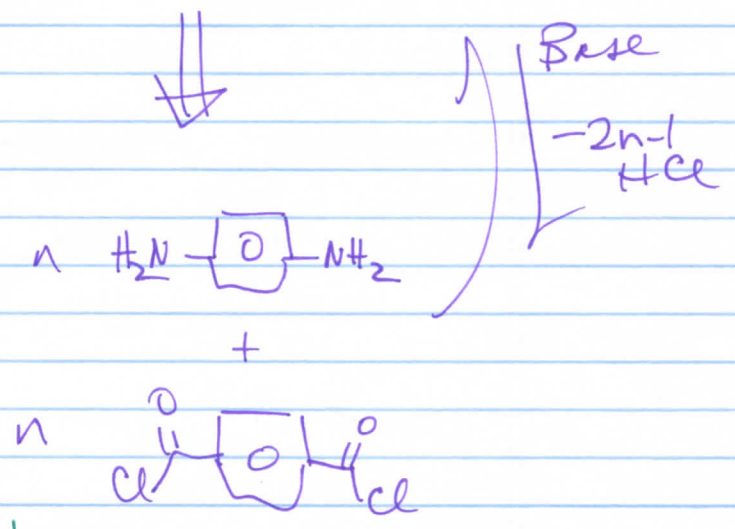 Base
-2n-1
HCl
n H2N O NH2
+
n O O O
Cl Cl